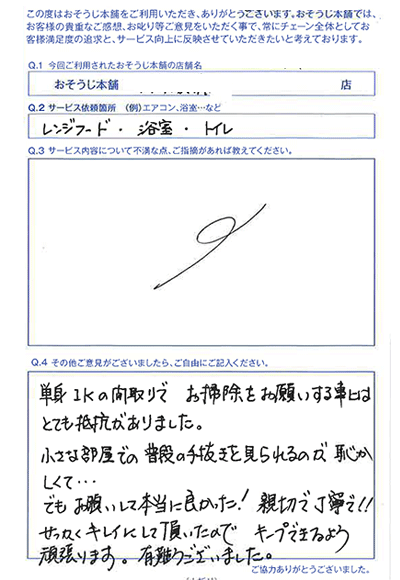 この度はおそうじ本舗をご利用いただき、ありがとうございます。おそうじ本舗では、
お客様の貴重なご感想、お叱り等ご意見をいただく事で、常にチェーン全体としてお
客様満足度の追求と、サービス向上に反映させていただきたいと考えております。
Q.1 今回ご利用されたおそうじ本舗の店舗名
おそうじ本舗 店
Q.2 サービス依頼箇所 (例)エアコン、浴室…など
レンジフード・浴室・トイレ
Q.3 サービス内容について不満な点、ご指摘があれば教えてください。
Q.4 その他ご意見がございましたら、ご自由にご記入ください。
単身1Kの間取りで お掃除をお願いする事には
とても抵抗がありました。
小さな部屋での普段の手抜きを見られるのが恥か
しくて…
でもお願いして本当に良かった! 親切で丁寧で!!
せっかくキレイにして頂いたので キープできるよう
頑張ります。有難うございました。
ご協力ありがとうございました。